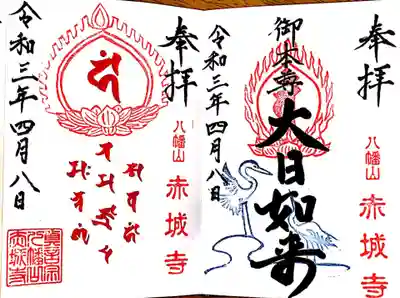 奉拝
八幡山 赤城寺
御本尊
大日如来
令和三年四月八日
奉拝
八幡山 赤城寺
令和三年四月八日
真言宗
八幡山
赤城寺